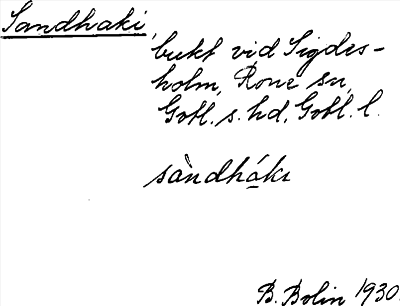 Sandhaki,
bukt vid Sigdes-
holm, Rone sn,
Gotl. s. hd, Gotl. l.
sàndhákı
B. Bolin 1930.